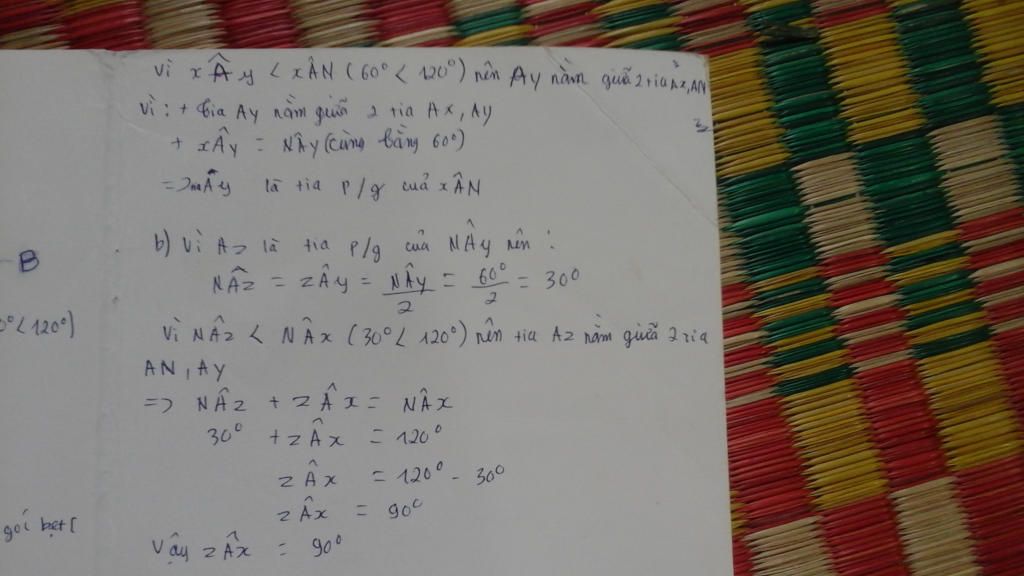 Vì xÂy < xÂN (60° < 120°) nên Ay nằm giữa 2 tia Ax, AN
Vì : + tia Ay nằm giữa 2 tia Ax, Ay
+ xÂy = NÂy (cùng bằng 60°)
=> Ây là tia p/g cuả xÂN
b) Vì Az là tia p/g của NÂy nên :
NÂz = zÂy = NÂy/2 = 60°/2 = 30°
Vì NÂz < NÂx (30° < 120°) nên tia Az nằm giữa 2 tia
AN, Ay
=> NÂz + zÂx = NÂx
30° + zÂx = 120°
zÂx = 120° - 30°
zÂx = 90°
Vậy zÂx = 90°
B
0° < 120°)